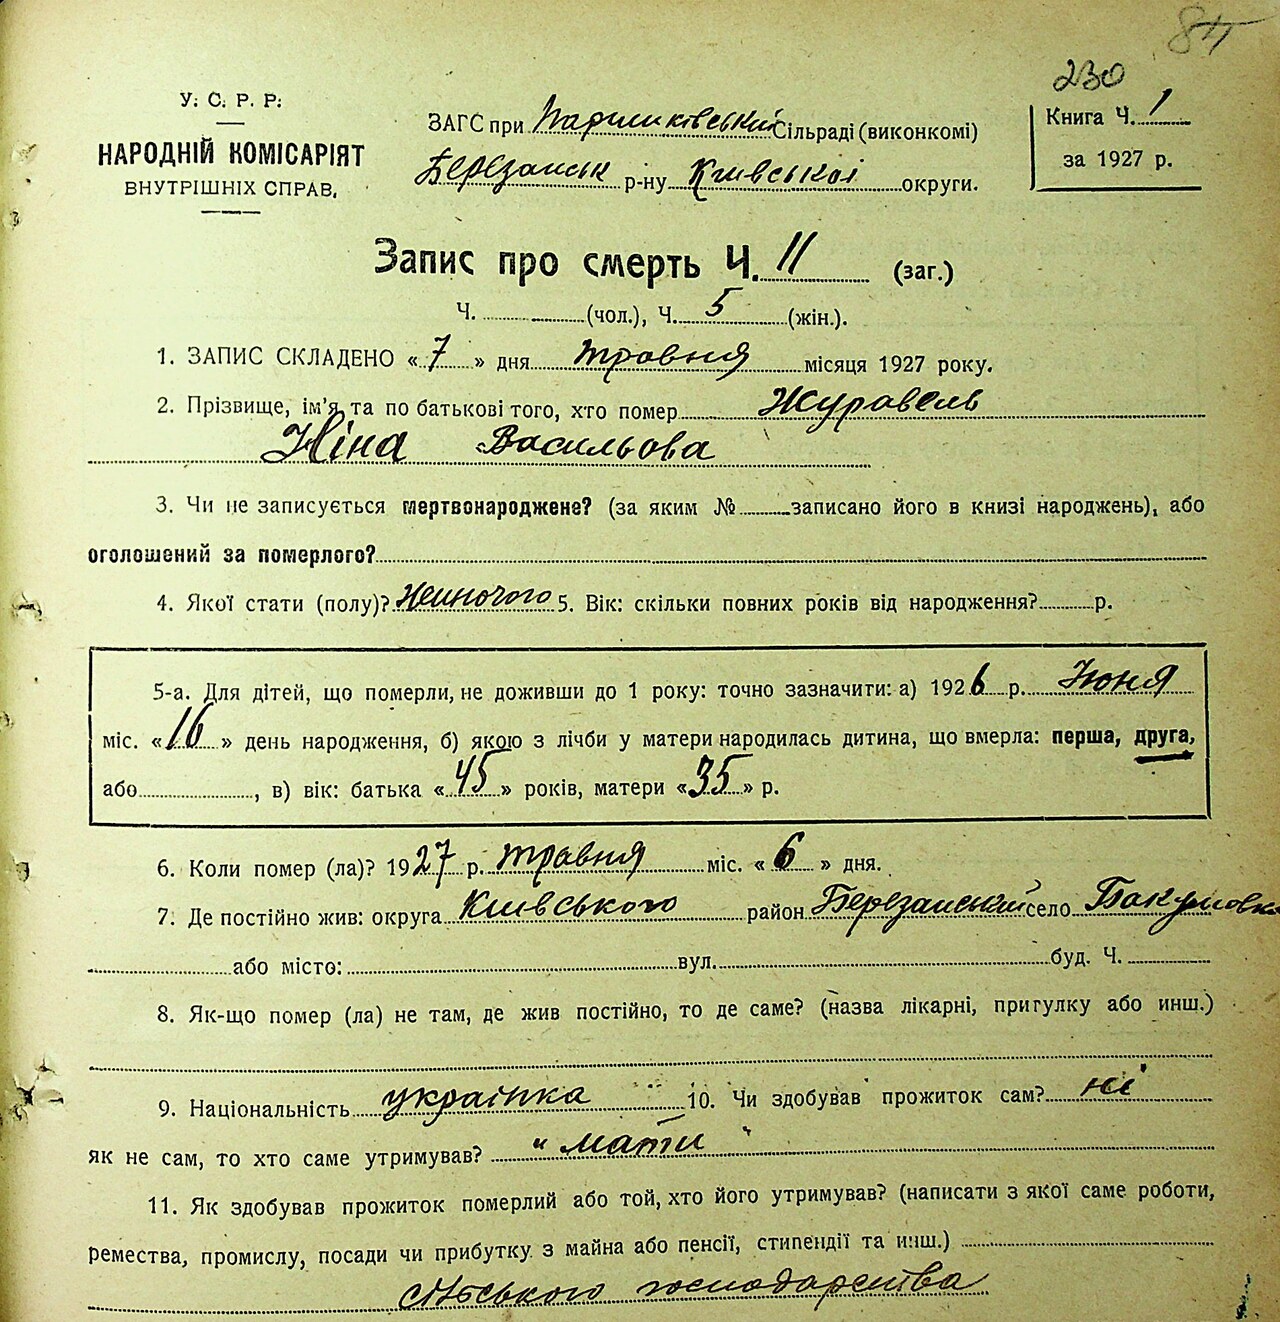 84
230
У. С. Р. Р.
НАРОДНІЙ КОМІСАРІЯТ
ВНУТРІШНІХ СПРАВ.
ЗАГС при Паришківський Сільраді (виконкомі)
Березанськ р-ну Київської округи.
Книга Ч. 1
за 1927 р.
Запис про смерть Ч. 11 (заг.)
Ч. (чол.), Ч. 5 (жін.).
1. ЗАПИС СКЛАДЕНО « 7 » дня травня місяця 1927 року.
2. Прізвище, ім'я та по батькові того, хто помер Журавель
Ніна Васильова
3. Чи не записується мертвонароджене? (за яким № записано його в книзі народжень), або
оголошений за померлого?
4. Якої стати (полу)? Жиночого 5. Вік: скільки повних років від народження? р.
5-а. Для дітей, що померли, не доживши до 1 року: точно зазначити: а) 1926 р. Июня
міс. « 16 » день народження, б) якою з лічби у матери народилась дитина, що вмерла: перша, друга,
або , в) вік: батька « 45 » років, матери « 35 » р.
6. Коли помер (ла)? 1927 р. травня міс. « 6 » дня.
7. Де постійно жив: округа Київського район Березанський село Бакумовка
або місто: вул. буд. Ч.
8. Як-що помер (ла) не там, де жив постійно, то де саме? (назва лікарні, пригулку або инш.)
9. Національність українка 10. Чи здобував прожиток сам? ні
як не сам, то хто саме утримував? "мати"
11. Як здобував прожиток померлий або той, хто його утримував? (написати з якої саме роботи,
ремества, промислу, посади чи прибутку з майна або пенсії, стипендії та инш.)
сільського господарства